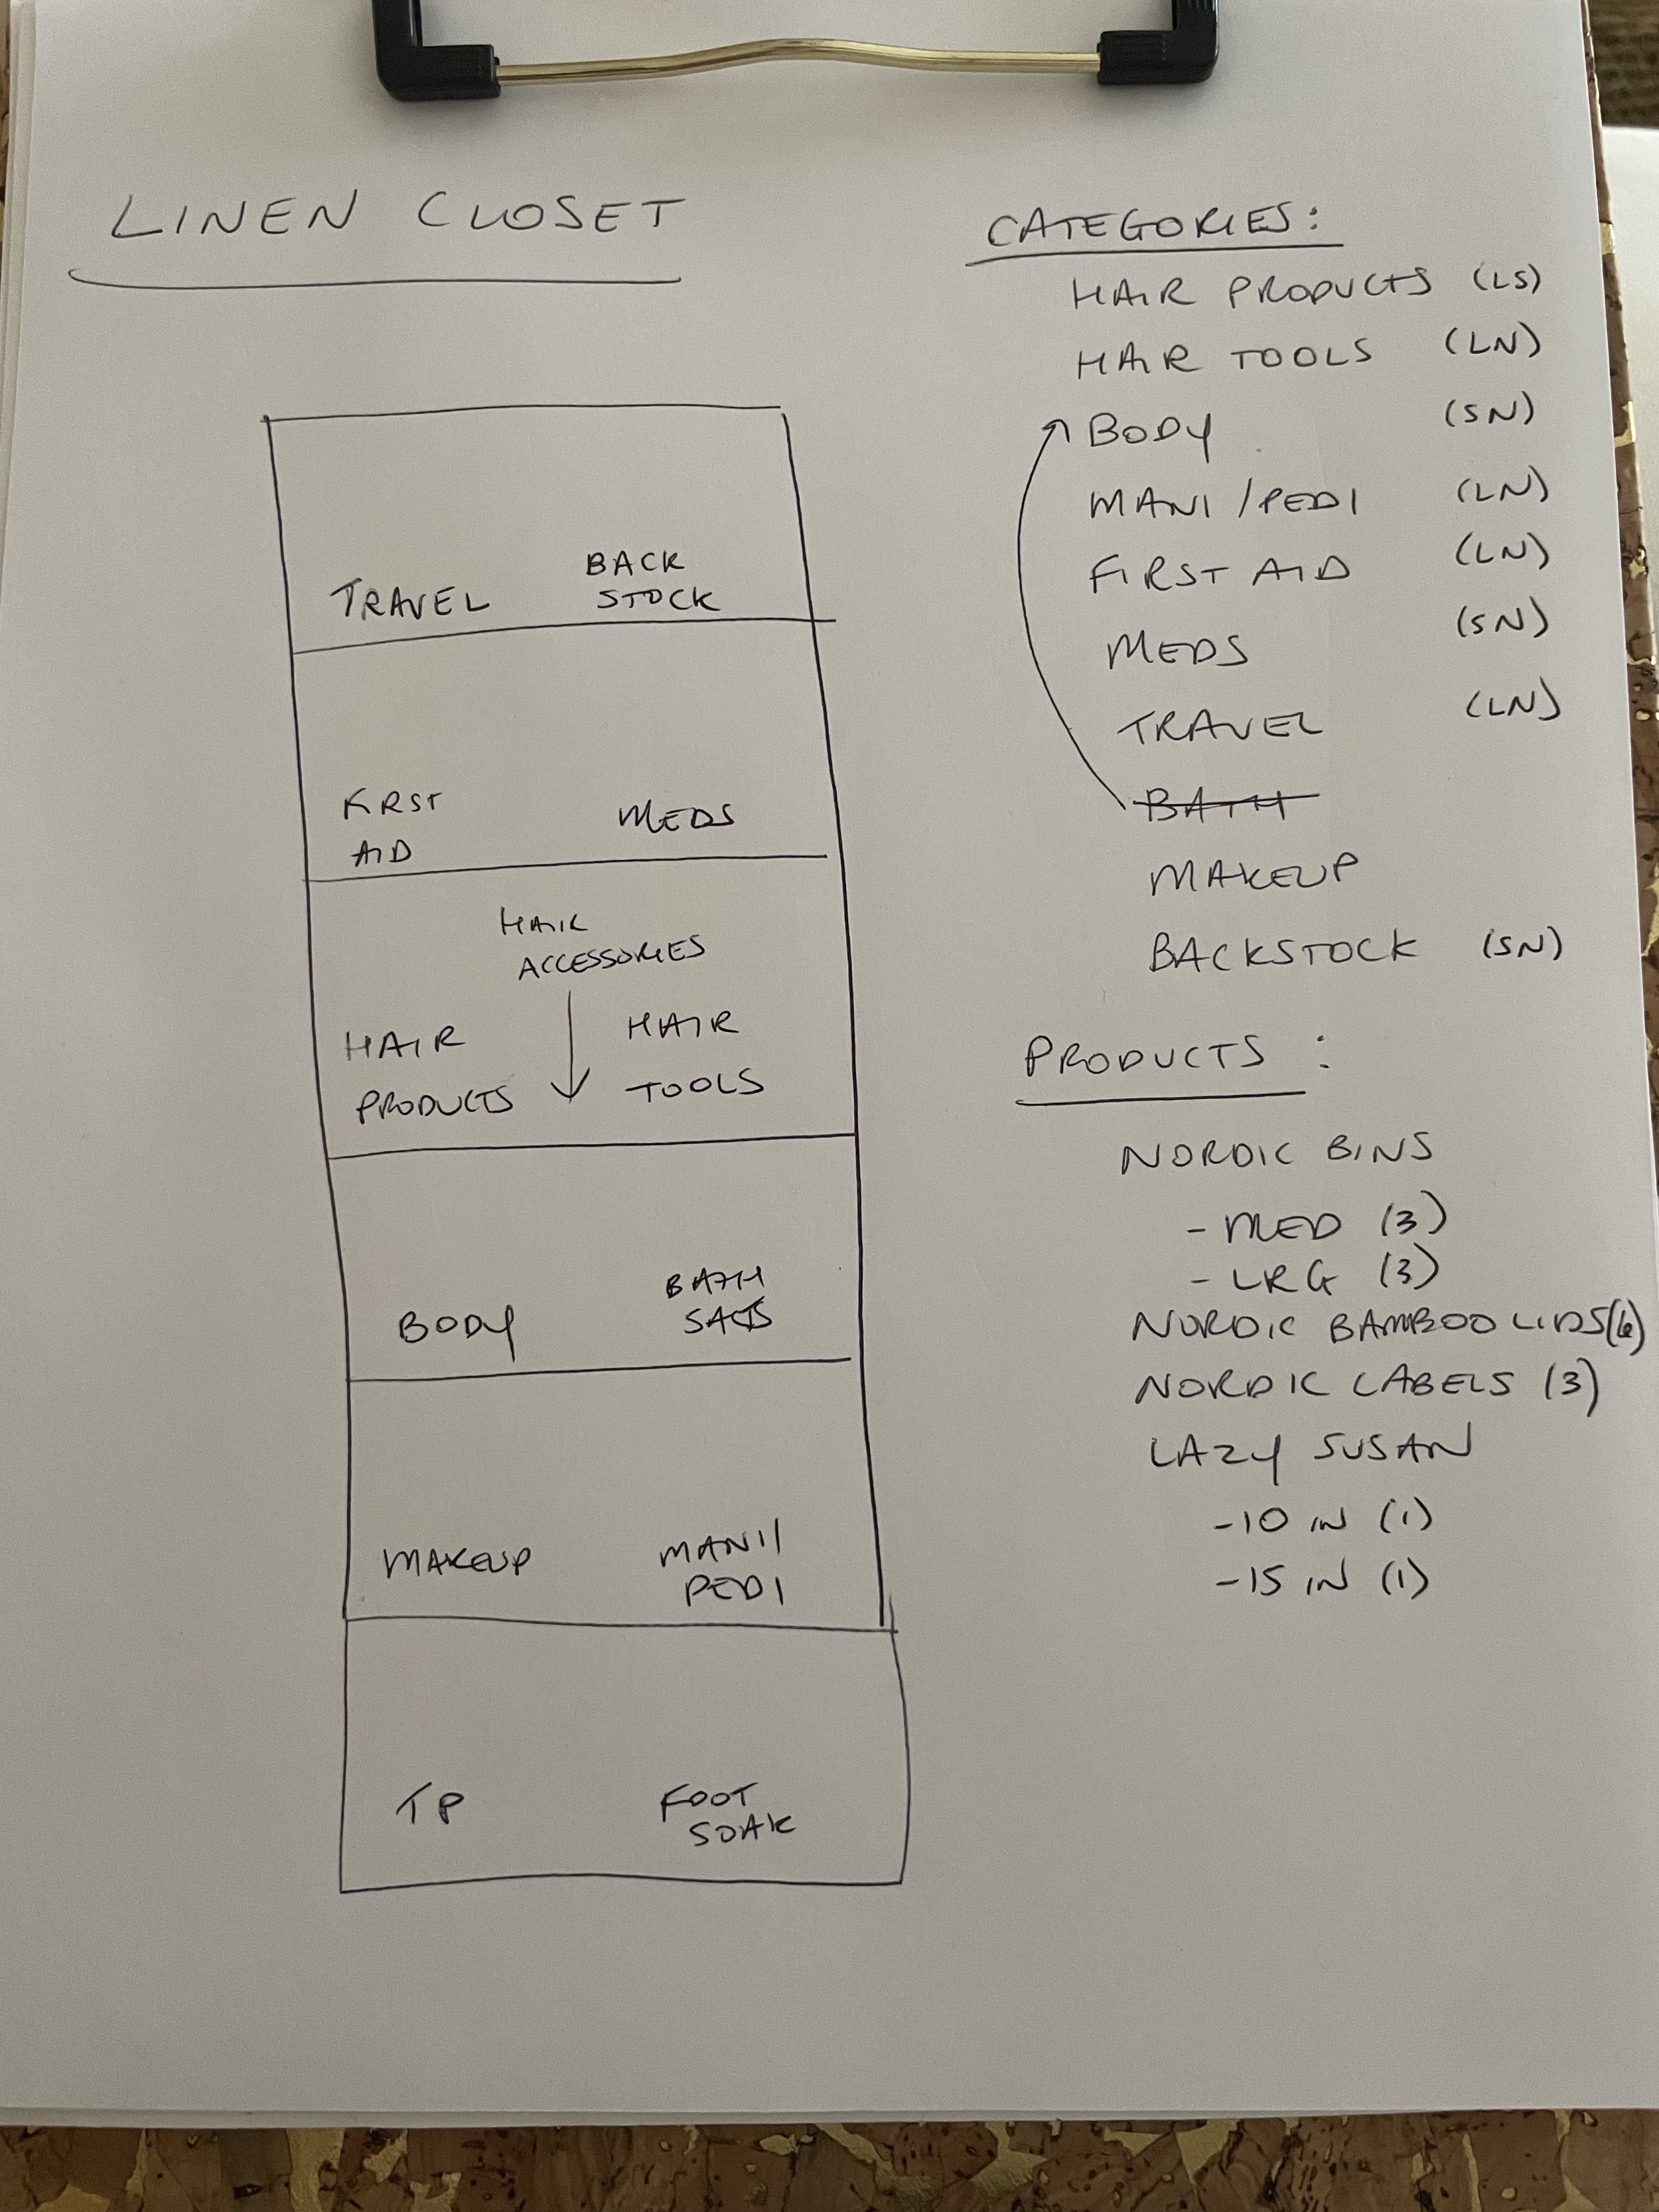 LINEN CLOSET
TRAVEL
BACK
STOCK
FIRST
AID
MEDS
HAIR
ACCESSORIES
HAIR
PRODUCTS
HAIR
TOOLS
BODY
BATH
SALTS
MAKEUP
MANI/
PEDI
TP
FOOT
SOAK
CATEGORIES:
HAIR PRODUCTS (LS)
HAIR TOOLS (LN)
BODY (SN)
MANI/PEDI (LN)
FIRST AID (LN)
MEDS (SN)
TRAVEL (LN)
BATH
MAKEUP
BACKSTOCK (SN)
PRODUCTS:
NORDIC BINS
- MED (3)
- LRG (3)
NORDIC BAMBOO LIDS (6)
NORDIC LABELS (3)
LAZY SUSAN
-10 IN (1)
-15 IN (1)